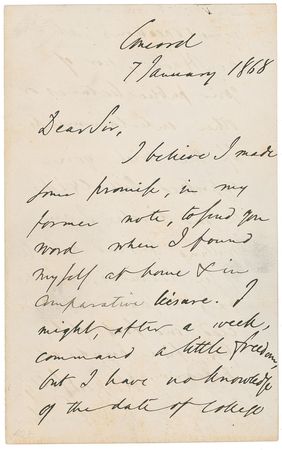 Concord
7 January 1868
Dear Sir,
I believe I made
some promise, in my
former note, to send you
word when I found
myself at home & in
comparative leisure. I
might, after a week,
command a little freedom,
but I have no knowledge
of the date of College